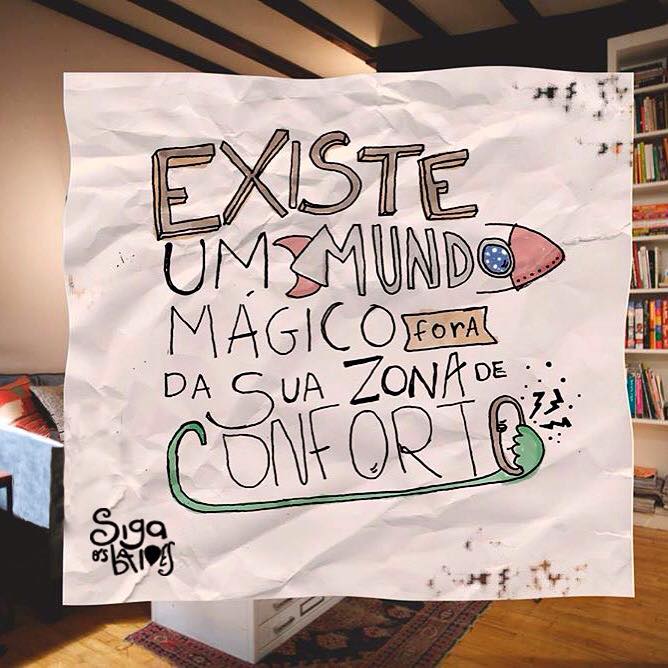 EXISTE
UM MUNDO
MÁGICO FORA
DA SUA ZONA DE
CONFORTO
Siga
os